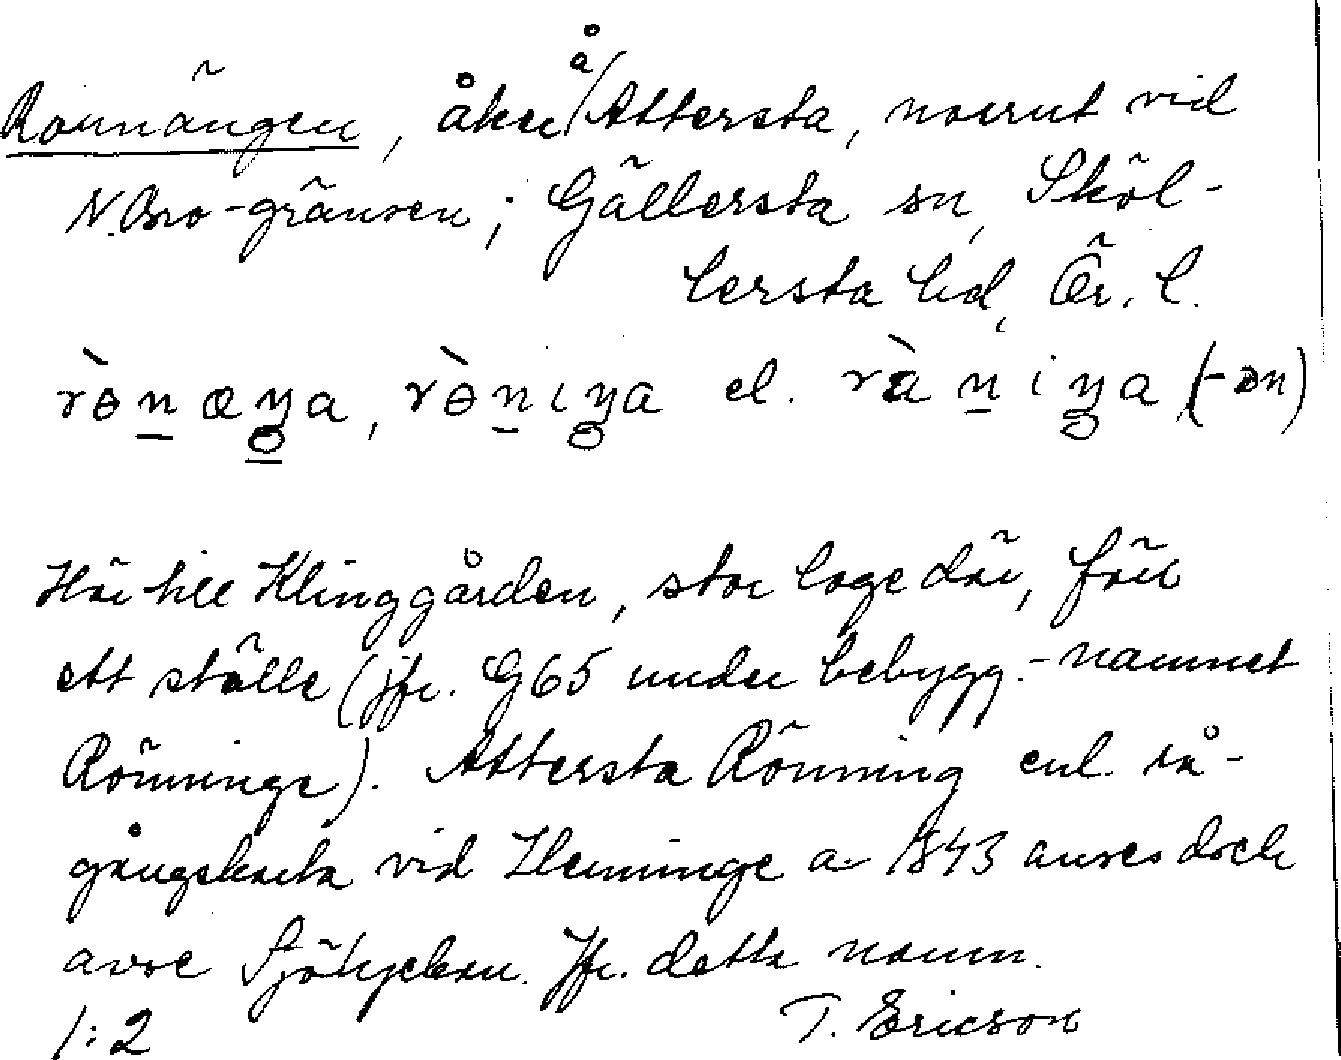 Rannängen, åker å Attersta, norrut vid
N. Bro-gränsen; Gällersta sn, Sköl-
lersta hd, Ör. l.
rɵ̀n̠æŋa, rɵ̀n̠ıŋa el. ràn̠iŋa (-ən)
Hör till Klinggården, stor loge där, förr
ett ställe (jfr. G65 under bebygg.-namnet
Rönninge). Attersta Rönning enl. rå-
gångskarta vid Hemminge a 1843 anses dock
avse Sjötyckan. Jfr. detta namn.
1:2 T. Ericson